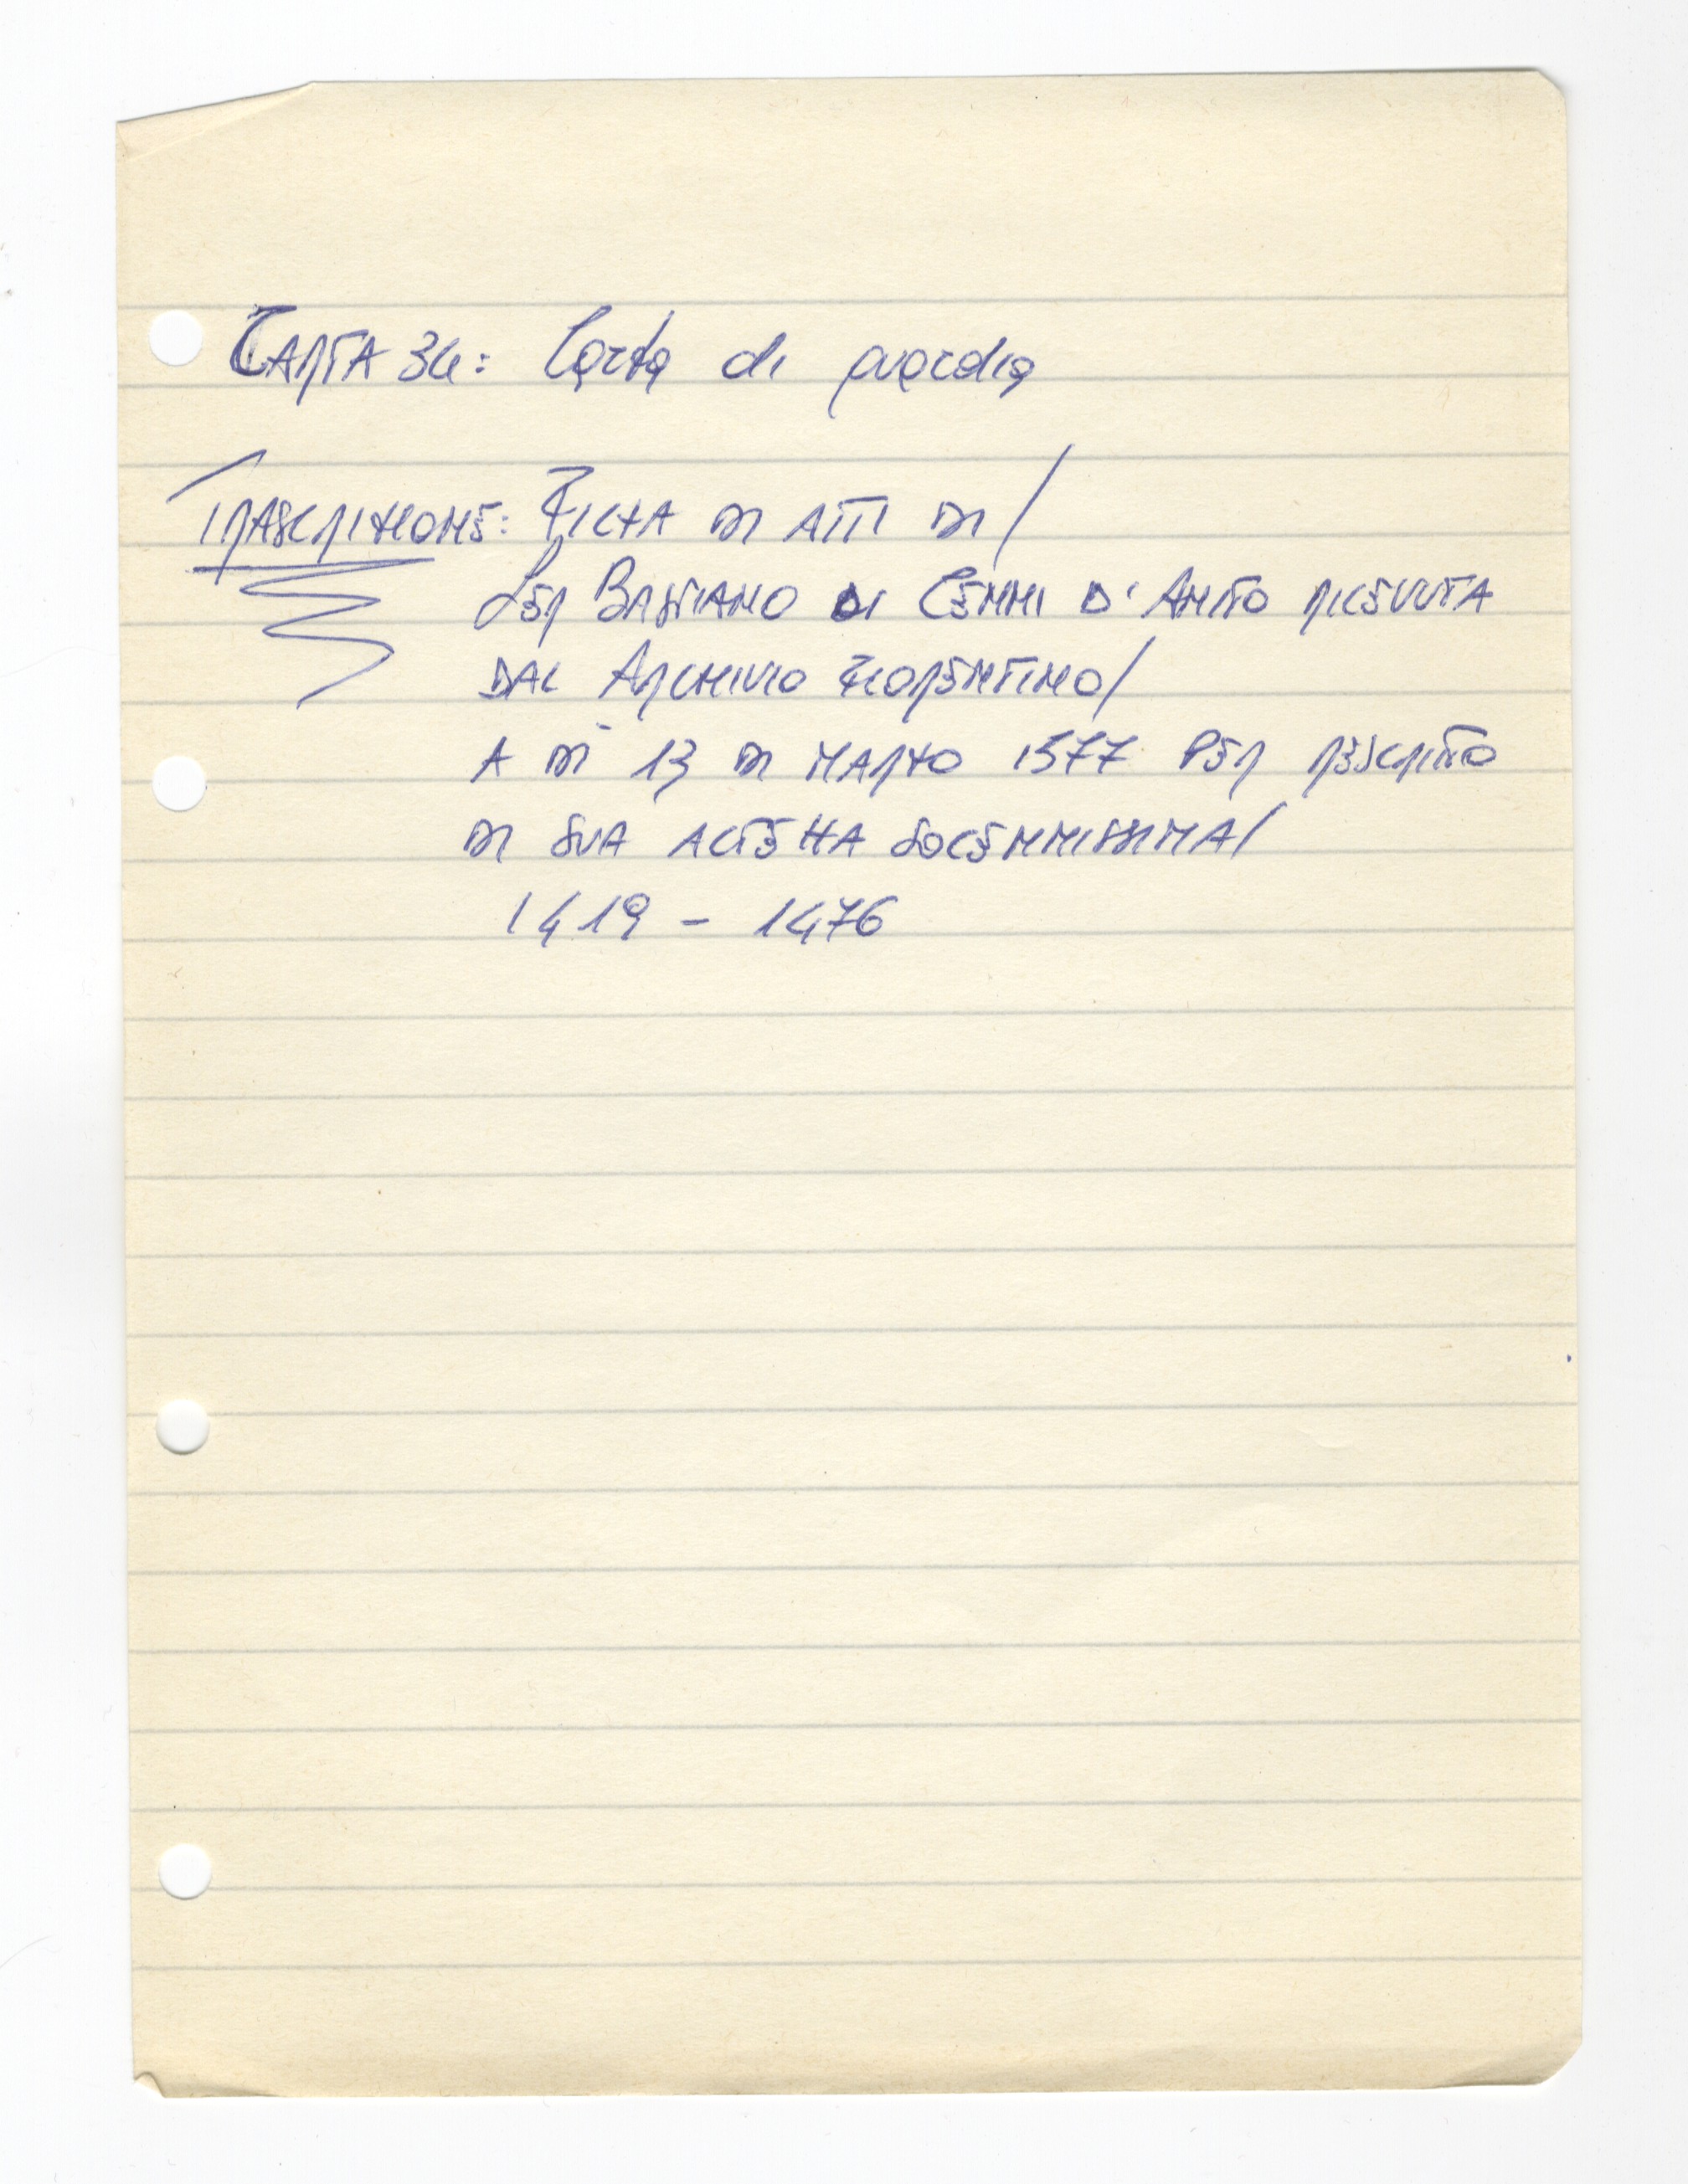 CARTA 34: Carta di guardia
TRASCRITIONE: FILZA DI ATTI DI /
SER BASTIANO DI CENNI D'AMATO RICEVUTA
DAL ARCHIVIO FIORENTINO /
A DÌ 13 DI MARZO 1577 PER RESCRITTO
DI SUA ALTEZZA SOLENNISSIMA /
1419 - 1476